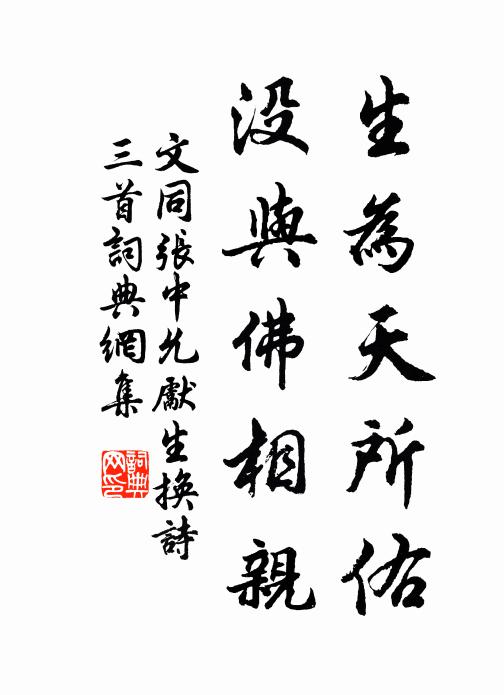 生為天所佑
没與佛相親
文同張中允獻生換詩
三首詞典網集
詞典
网印